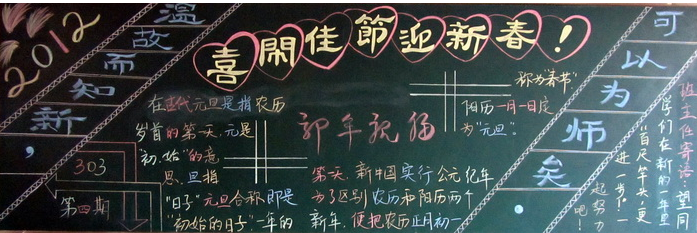 2012
温故而知新，
可以为师矣。
喜闹佳节迎新春！
新年祝福
在古代元旦是指农历
岁首的第一天，元是
初、始"的意
思，旦指
"日子"元旦合称即是
"初始的日子"一年的
第一天。新中国实行公元纪年
为了区别农历和阳历两个
新年，便把农历正月初一
称为"春节"
阳历一月一日定
为"元旦"。
303
第四期
班主任寄语：望同
学们在新的一年里
"百尺竿头，更
进一步"
一起努力
吧！